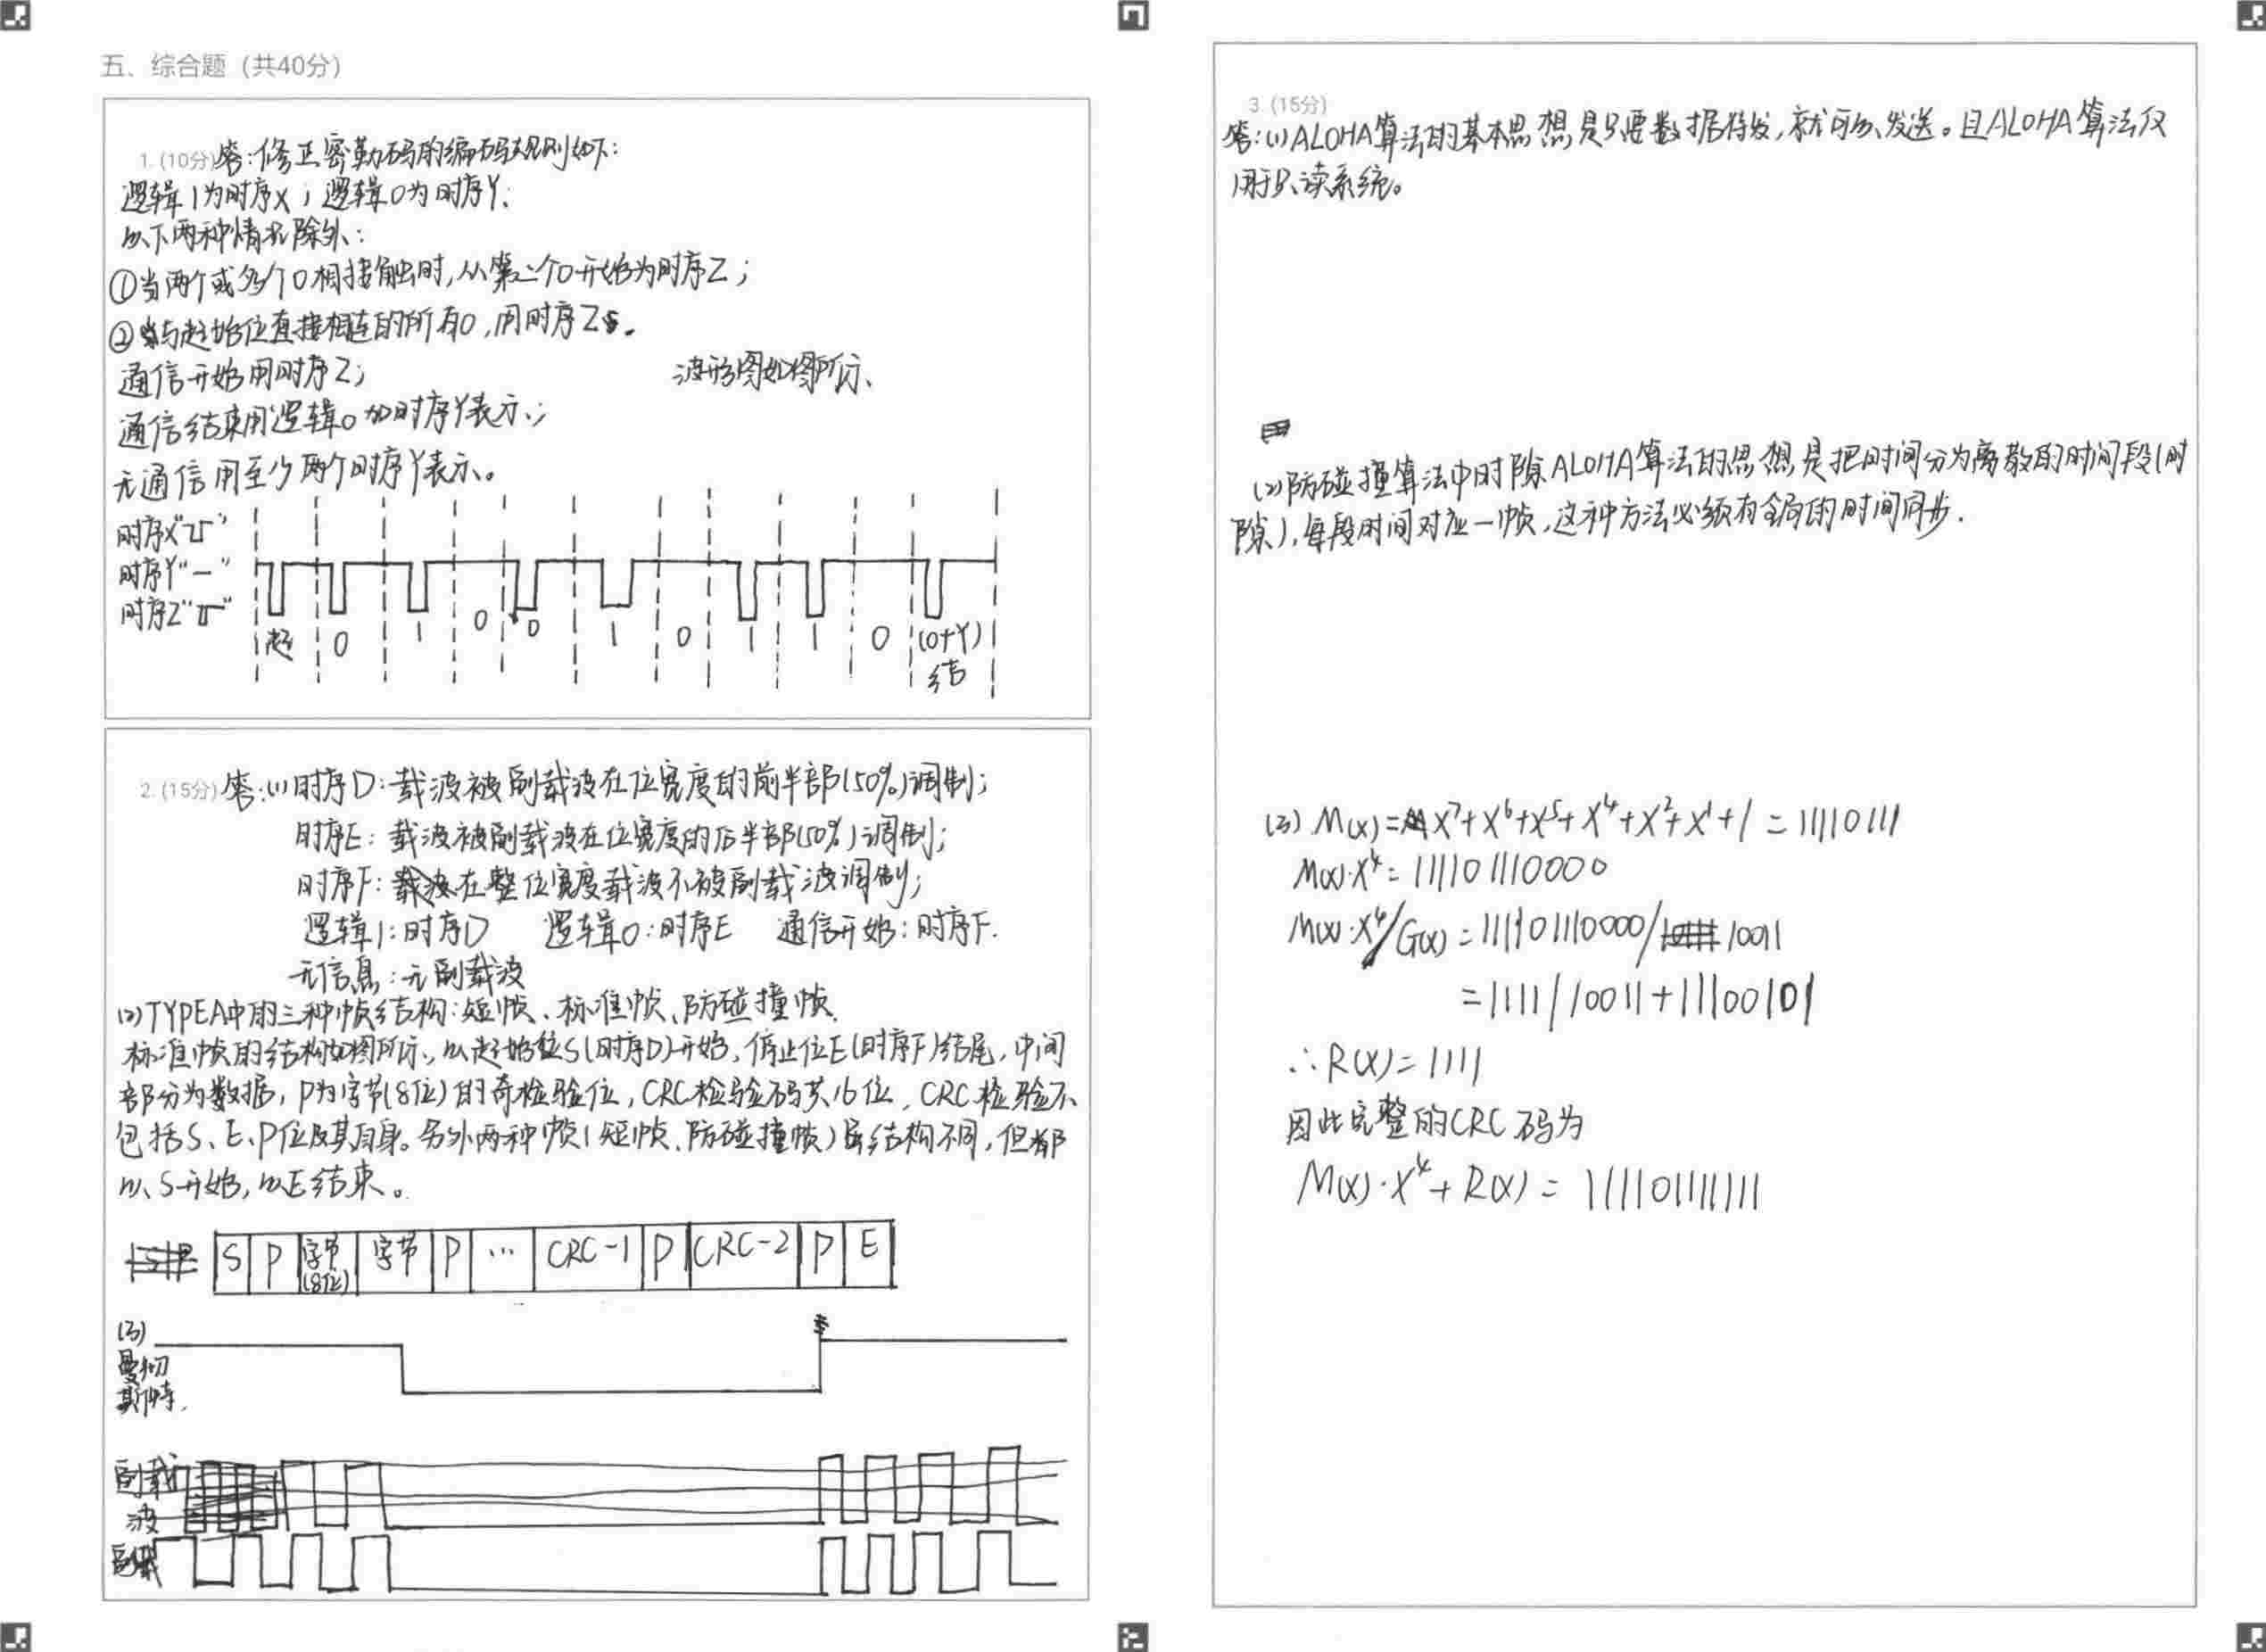 五、综合题（共40分）
1. (10分) 答：修正密勒码的编码规则如下：
逻辑1为时序X；逻辑0为时序Y；
以下两种情况除外：
①当两个或多个0相接触时，从第二个0开始为时序Z；
②与起始位直接相连的所有0，用时序Z。
通信开始用时序Z；
波形图如图所示、
通信结束用逻辑0加时序Y表示；
无通信用至少两个时序Y表示。
时序X“ ”
时序Y“—”
时序Z“ ”
起 0 1 0 0 1 0 1 1 0 (0+Y)
结
2. (15分) 答：(1)时序D：载波被副载波在位宽度的前半部(50%)调制；
时序E：载波被副载波在位宽度的后半部(50%)调制；
时序F：在整位宽度载波不被副载波调制；
逻辑1：时序D 逻辑0：时序E 通信开始：时序F.
无信息：无副载波
(2)TYPEA中的三种帧结构：短帧、标准帧、防碰撞帧.
标准帧的结构如图所示，以起始位S(时序D)开始，停止位E(时序F)结尾，中间
部分为数据，P为字节(8位)的奇检验位，CRC检验码共16位，CRC检验不
包括S、E、P位及其自身。另外两种帧(短帧、防碰撞帧)虽结构不同，但都
以S开始，以E结束。
S P 字节 字节 P … CRC-1 P CRC-2 P E
(8位)
(3)
曼彻
斯特.
副载
波
副载
3. (15分)
答：(1)ALOHA算法的基本思想是只要数据待发，就可以发送。且ALOHA算法仅
用于只读系统。
(2)防碰撞算法中时隙ALOHA算法的思想是把时间分为离散的时间段(时
隙)，每段时间对应一帧，这种方法必须有全局的时间同步.
(3) M(x)=X⁷+X⁶+X⁵+X⁴+X²+X¹+1=11110111
M(x)·X⁴=111101110000
M(x)·X⁴/G(x)=111101110000/10011
=1111/10011+11100101
∴R(X)=1111
因此完整的CRC码为
M(x)·X⁴+R(x)=111101111111